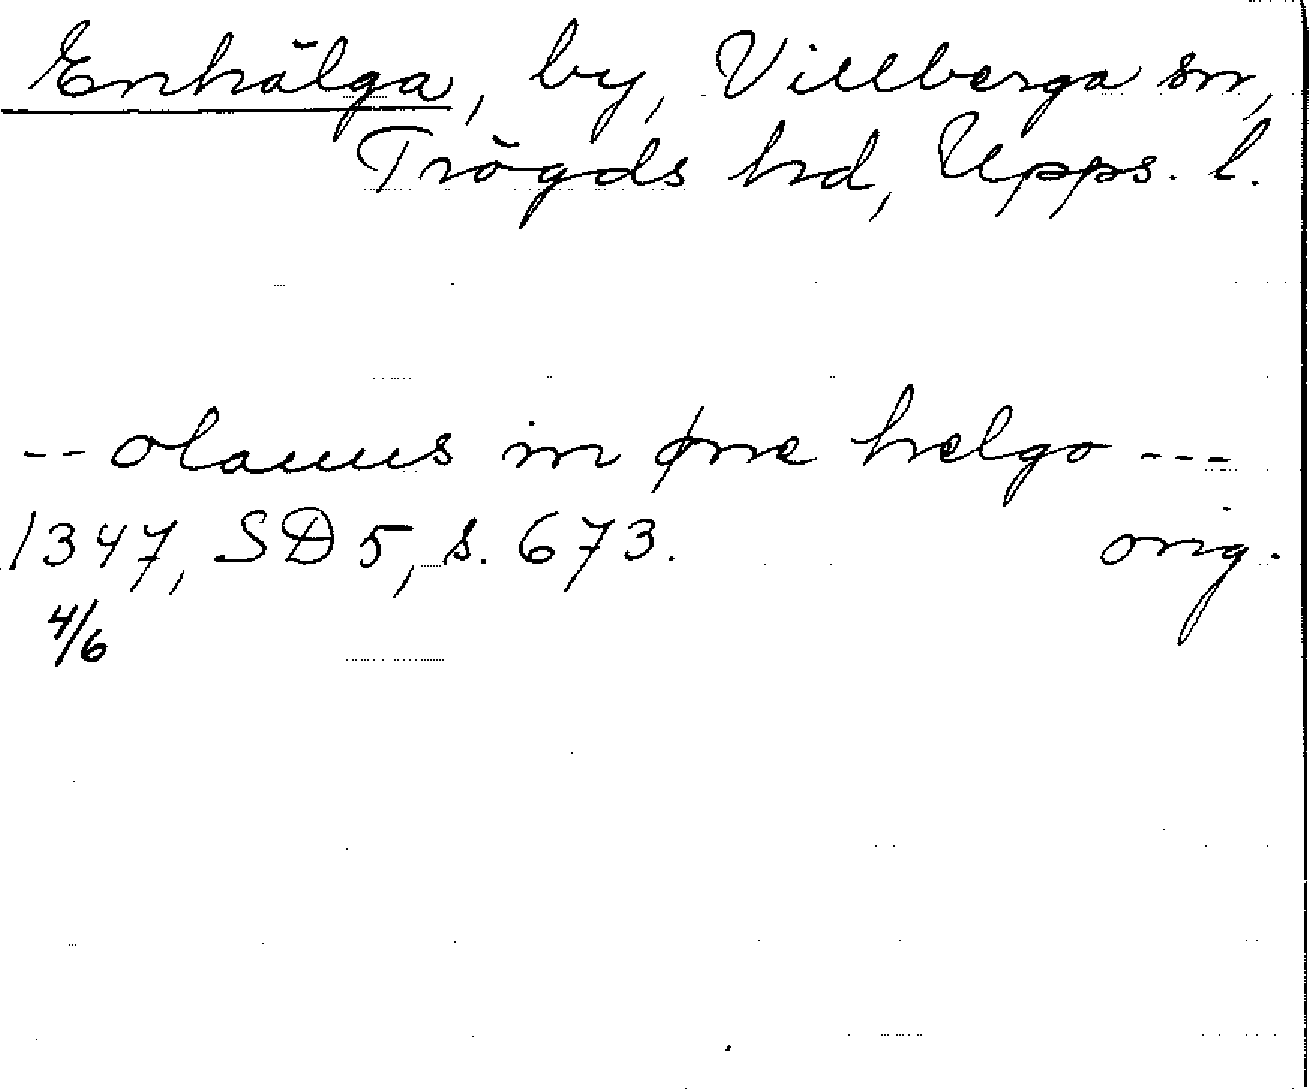 Enhälga, by, Villberga sn,
Trögds hd, Upps. l.
-- olauus in øne helgo ---
1347, SD 5, s. 673. orig.
4/6